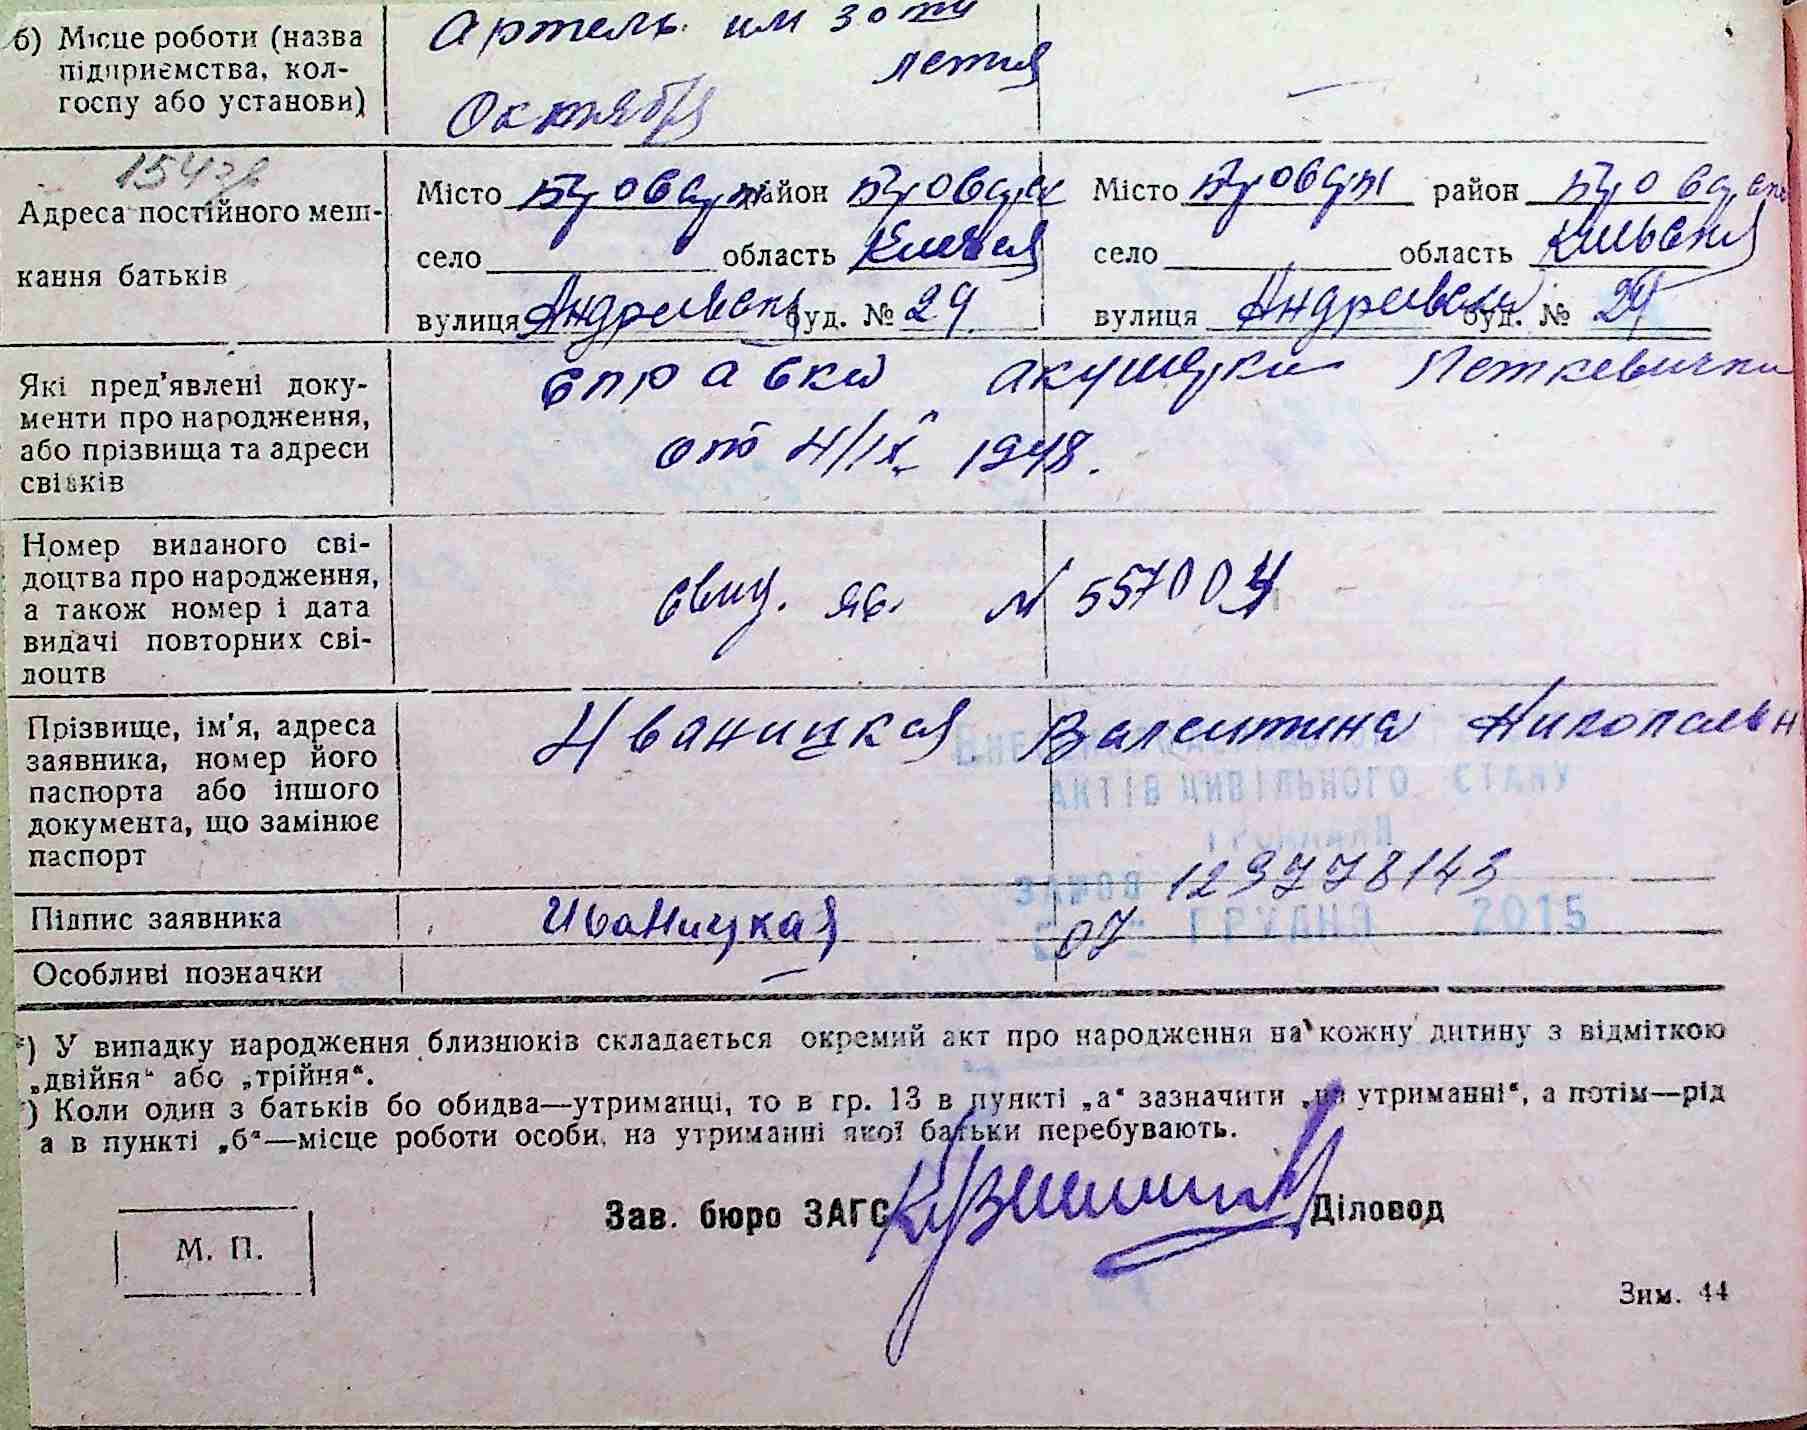 б) Місце роботи (назва
підприємства, кол-
госпу або установи)
Артель им 30ти
летия
Октября
Адреса постійного меш-
кання батьків
Місто Бровары район Бровар
село область Киевская
вулиця буд. № 29
Місто Бровары район
село область
вулиця буд. №
Які пред'явлені доку-
менти про народження,
або прізвища та адреси
свідків
справка акушерки
от 4/IX 1948.
Номер виданого сві-
доцтва про народження,
а також номер і дата
видачі повторних сві-
доцтв
свид. яв. N 557004
Прізвище, ім'я, адреса
заявника, номер його
паспорта або іншого
документа, що замінює
паспорт
Иваницкая Валентина
АКТІВ ЦИВІЛЬНОГО СТАНУ
ГРОМАДЯН
123778143
Підпис заявника
Иваницкая
07 ГРУДНЯ 2015
Особливі позначки
—
*) У випадку народження близнюків складається окремий акт про народження на кожну дитину з відміткою
„двійня“ або „трійня“.
) Коли один з батьків бо обидва—утриманці, то в гр. 13 в пункті „а“ зазначити „на утриманні“, а потім—рід
а в пункті „б“—місце роботи особи, на утриманні якої батьки перебувають.
Зав. бюро ЗАГС Діловод
М. П.
Зим. 44